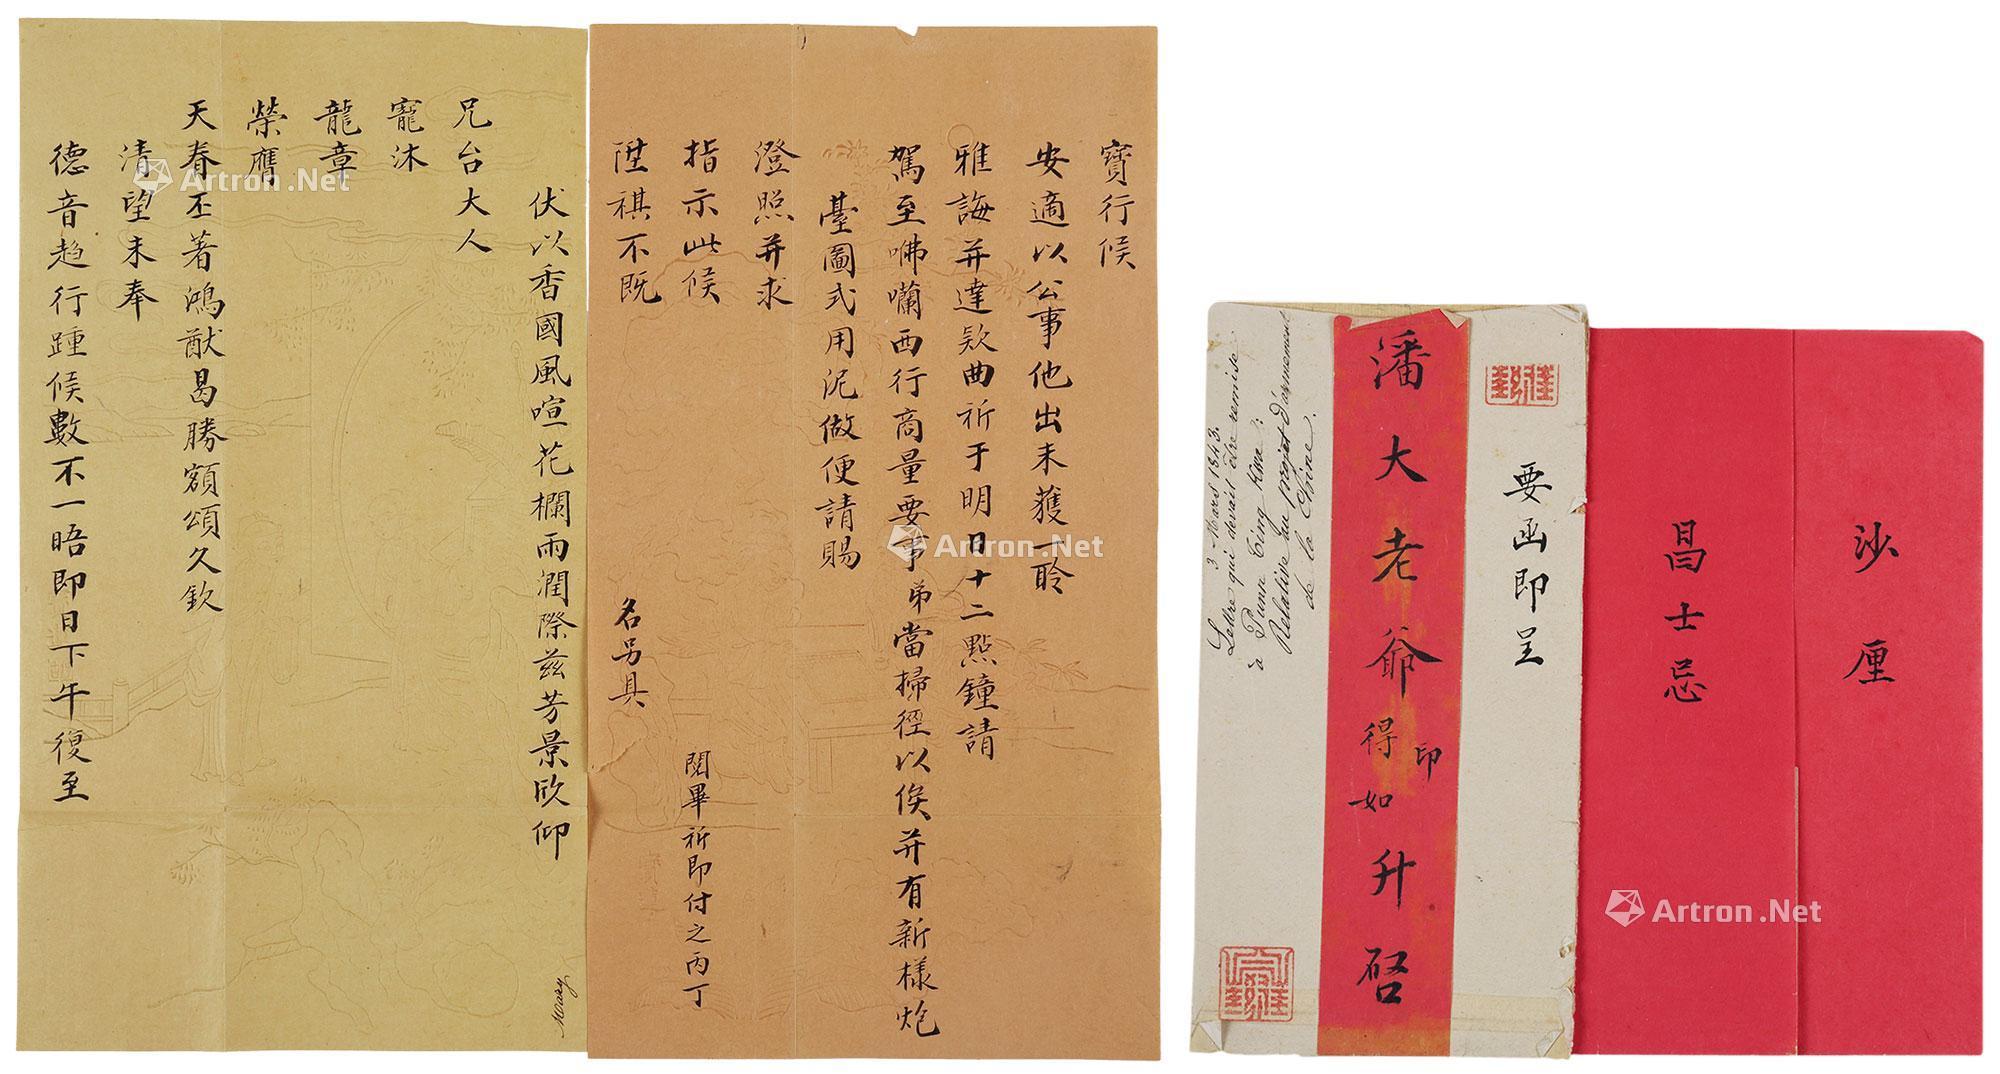 伏以香國風喧花欄雨潤際兹芳景欣仰
兄台大人
寵沐
龍章
榮膺
天眷丕著鴻猷曷勝額頌久欽
清望未奉
德音趋行踵候數不一晤即日下午復至
Mary
寶行候
安適以公事他出未獲一聆
雅誨并達欵曲祈于明日十二點鐘請
駕至咈囒西行商量要事弟當掃徑以俟并有新樣炮
臺圖式用泥做便請賜
澄照并求
指示此候
陞祺不既
名另具
閱畢祈即付之丙丁
3 Mars 1843.
Lettre qui devait être remise
à Punn Ting Kwa:
Relative au projet d'armement
de la Chine.
潘大老爺印得如升啓
要函即呈
昌士忌
沙厘
Artron.Net
Artron.Net
Artron.Net